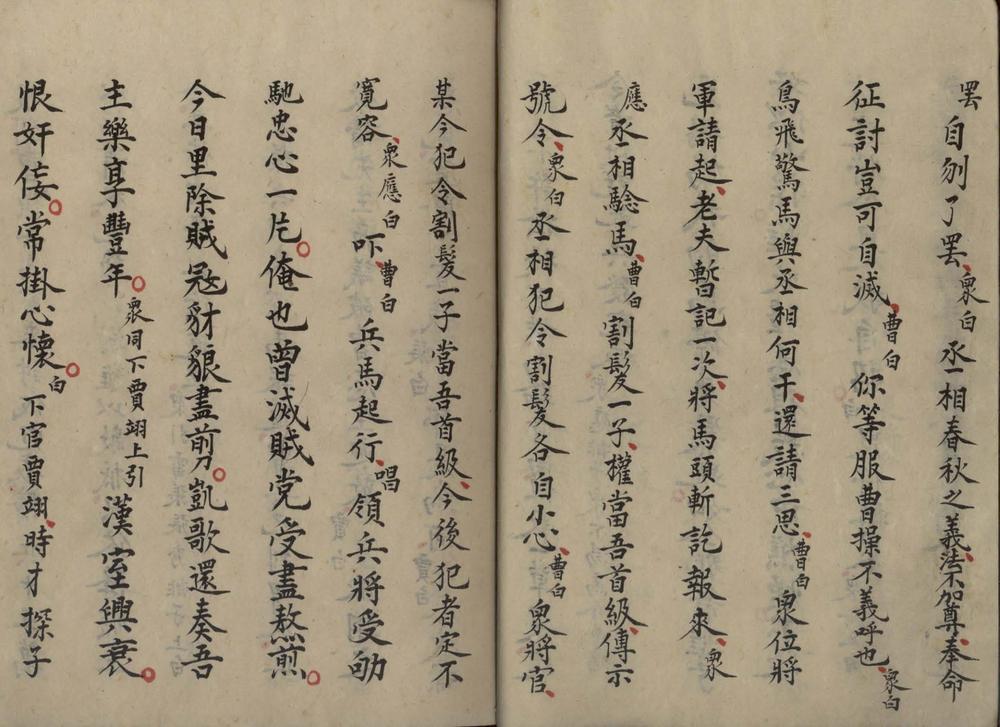 罢自刎了罢衆白丞相春秋之義法不加尊奉命
征討豈可自滅曹白你等服曹操不義呼也衆白
鳥飛驚馬與丞相何干還請三思曹白衆位將
軍請起老夫暫記一次將馬頭斬訖報來衆
應丞相騐馬曹白割髮一子權當吾首級傳示
號令衆白丞相犯令割髮各自小心曹白衆將官
某今犯令割髮一子當吾首級今後犯者定不
寛容衆應白吓曹白兵馬起行唱領兵將受劬
馳忠心一片俺也曾滅賊党受盡熬煎
今日里除賊冦豺狼盡剪凱歌還奏吾
主樂享豐年衆同下賈翊上引漢室興衰
恨奸侫常掛心懷白下官賈翊時才探子